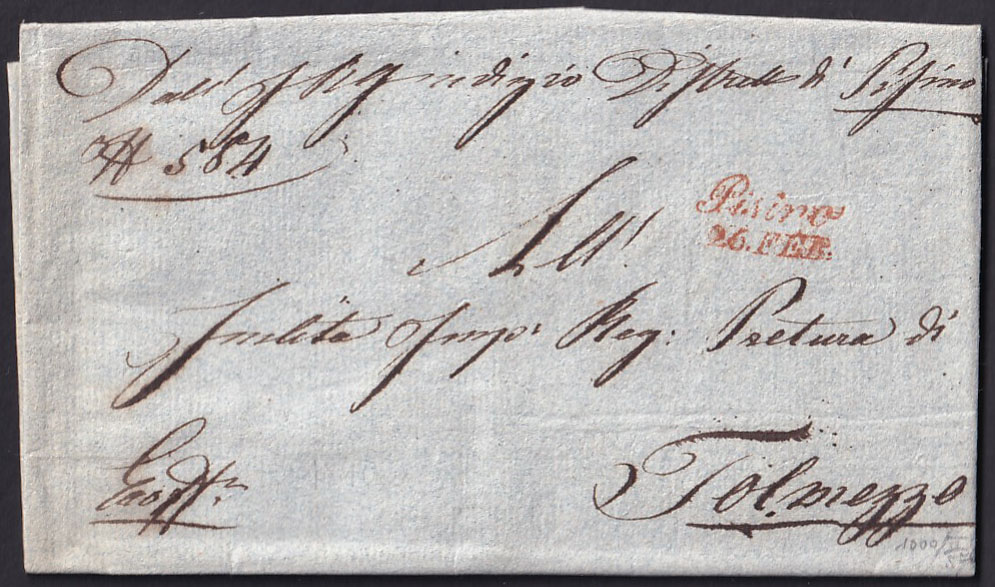 Dall' I R Giudizio Distrett di Pisino
N 584
Pisino
26.FEB.
All'
Inclita Imp: Reg: Pretura di
Tolmezzo
1000/